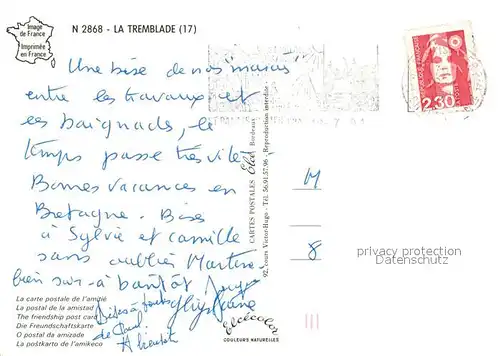 Image
de France
Imprimée
en France
N 2868 - LA TREMBLADE (17)
Une bise de nos "marais"
entre les travaux et
les baignades, le
temps passe très vite
Bonnes vacances en
Bretagne. Bises
à Sylvie et Camille
sans oublier Martine
bien sûr - à bientôt
Bises à tous
A bientôt
La carte postale de l'amitié
La postal de la amistad
The friendship post card
Die Freundschaftskarte
O postal da amizade
La poŝtkarto de l'amikeco
CARTES POSTALES Elcé Bordeaux
92, cours Victor-Hugo - Tél. 56.91.57.96 - Reproduction interdite
Elcécolor
COULEURS NATURELLES
RÉPUBLIQUE FRANÇAISE
2,30
POSTES
M
8
privacy protection
Datenschutz